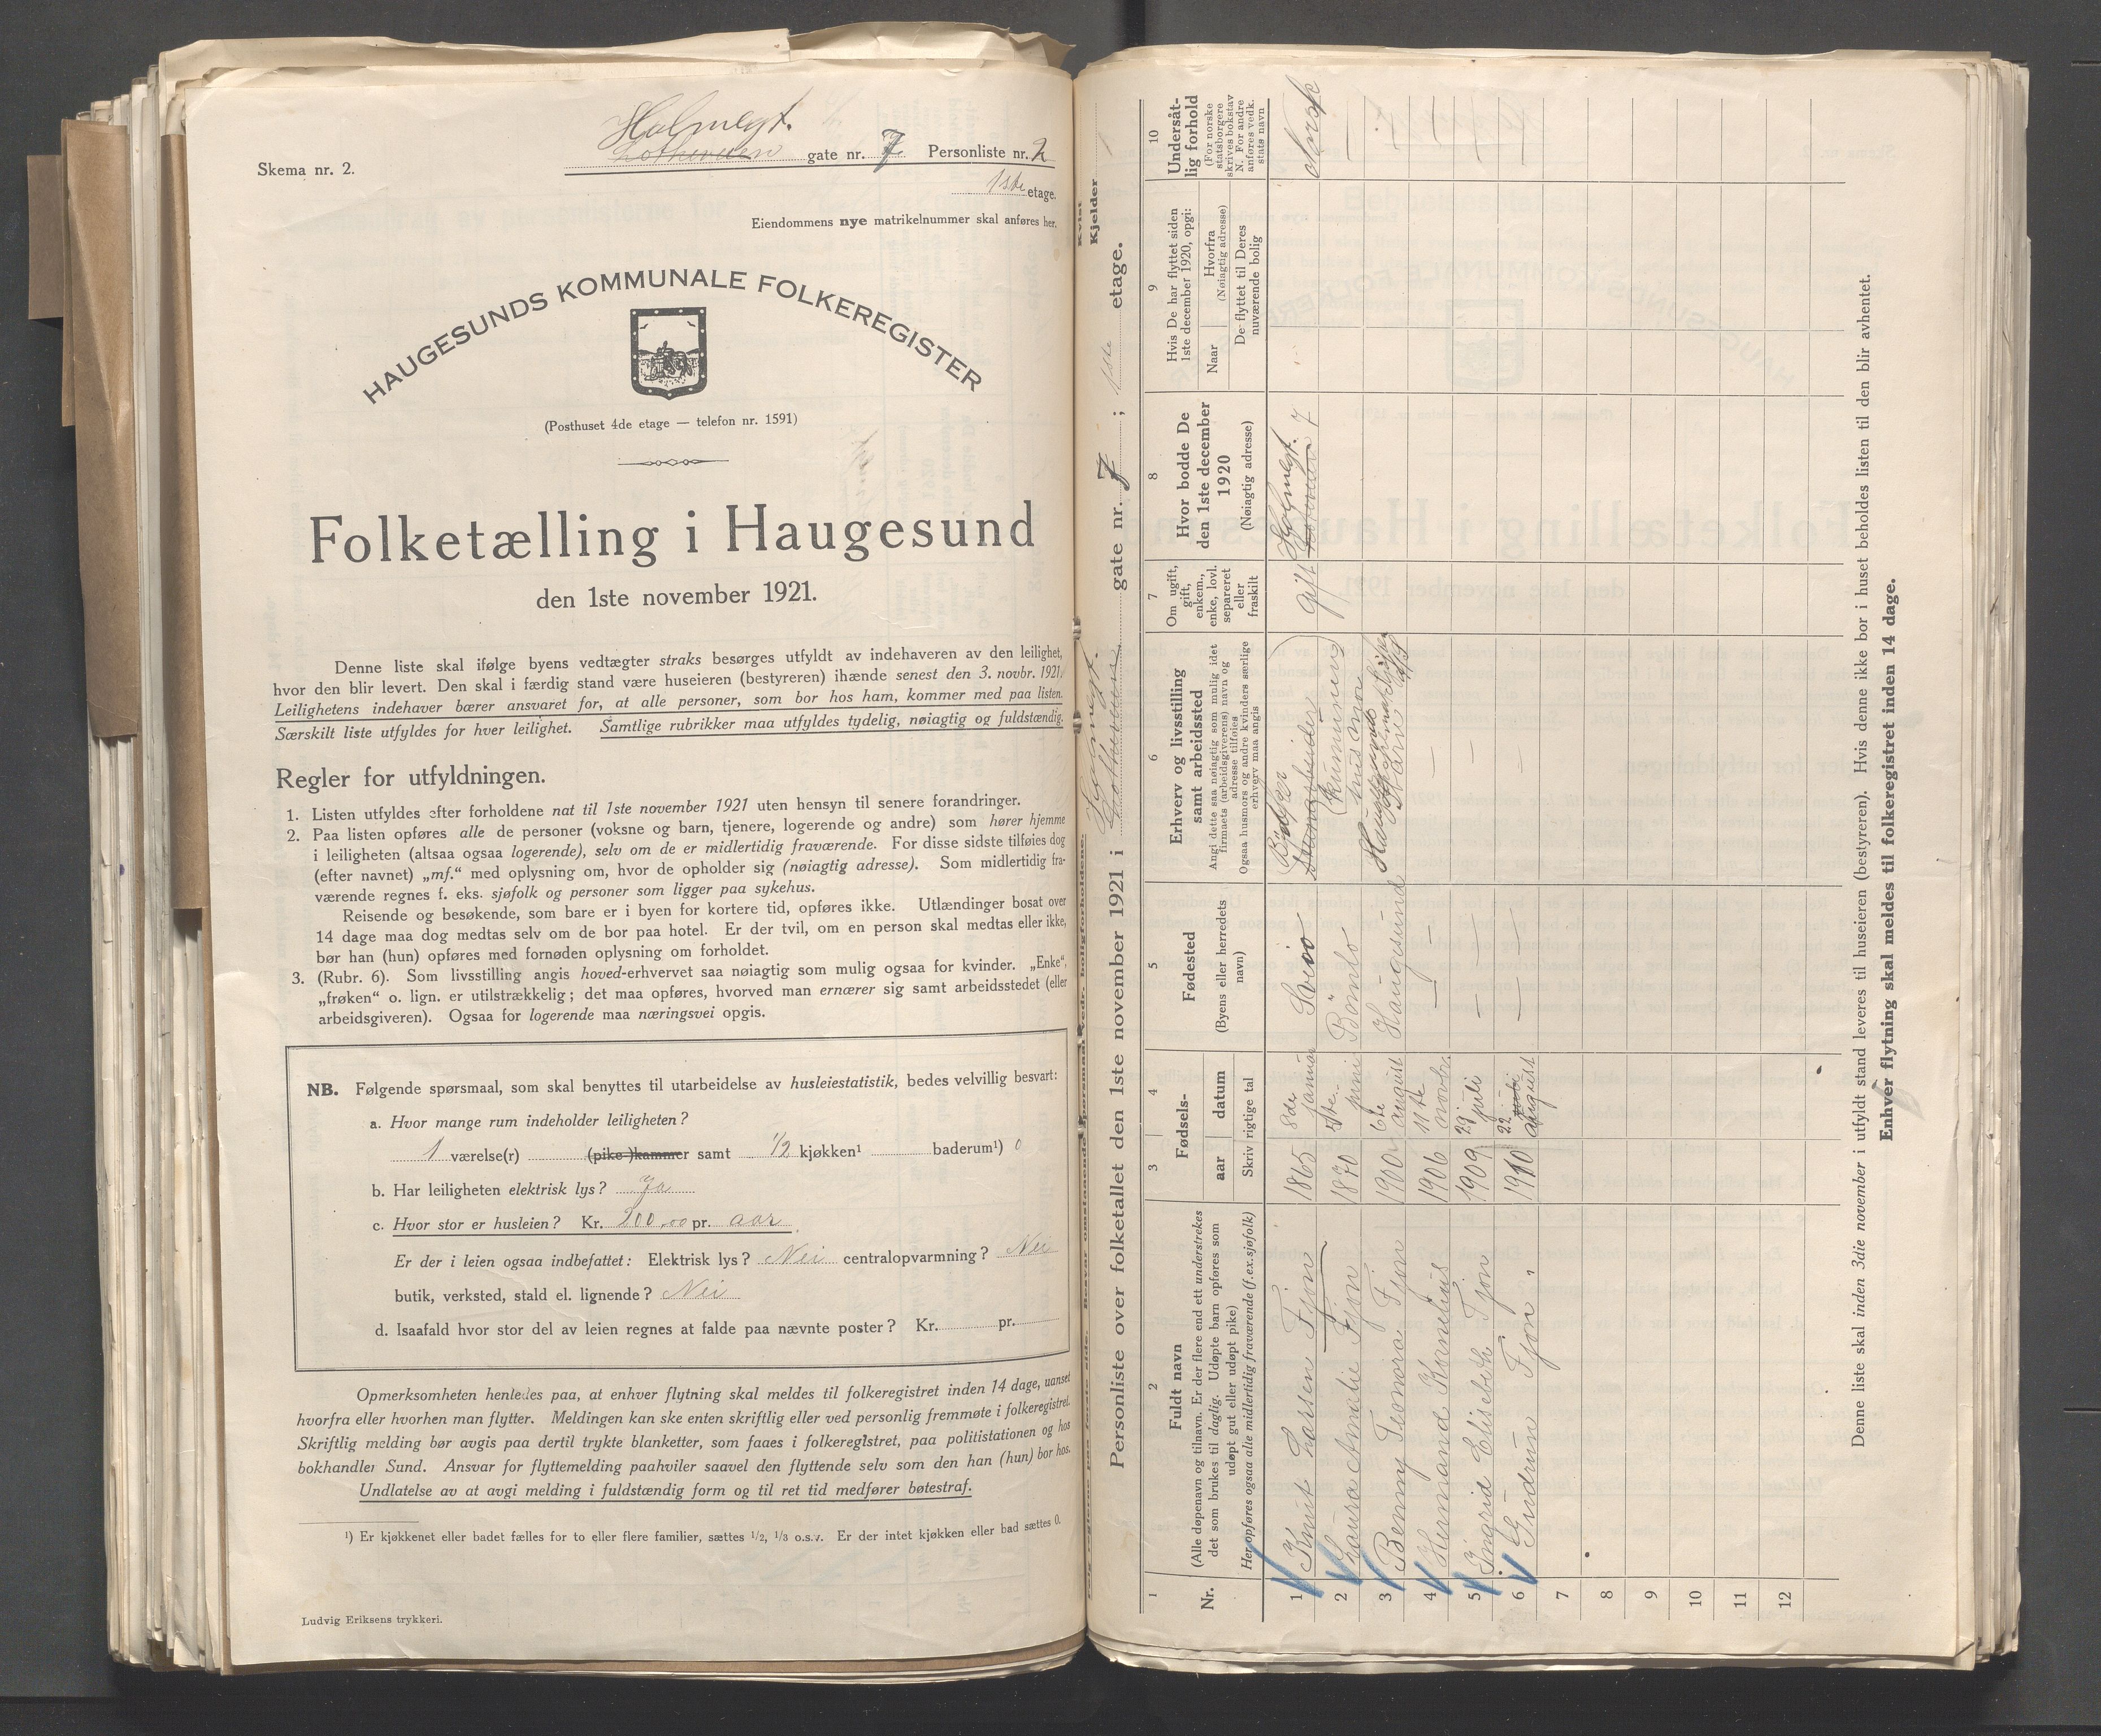 Holmegt.
Skema nr. 2.
Lotheveien gate nr. 7 Personliste nr. 2
1ste etage.
Eiendommens nye matrikelnummer skal anføres her.
HAUGESUNDS KOMMUNALE FOLKEREGISTER
(Posthuset 4de etage — telefon nr. 1591)
Folketælling i Haugesund
den 1ste november 1921.
Denne liste skal ifølge byens vedtægter straks besørges utfyldt av indehaveren av den leilighet,
hvor den blir levert. Den skal i færdig stand være huseieren (bestyreren) ihænde senest den 3. novbr. 1921.
Leilighetens indehaver bærer ansvaret for, at alle personer, som bor hos ham, kommer med paa listen.
Særskilt liste utfyldes for hver leilighet. Samtlige rubrikker maa utfyldes tydelig, nøiagtig og fuldstændig.
Regler for utfyldningen.
1. Listen utfyldes efter forholdene nat til 1ste november 1921 uten hensyn til senere forandringer.
2. Paa listen opføres alle de personer (voksne og barn, tjenere, logerende og andre) som hører hjemme
i leiligheten (altsaa ogsaa logerende), selv om de er midlertidig fraværende. For disse sidste tilføies dog
(efter navnet) „mf.“ med oplysning om, hvor de opholder sig (nøiagtig adresse). Som midlertidig fra-
værende regnes f. eks. sjøfolk og personer som ligger paa sykehus.
Reisende og besøkende, som bare er i byen for kortere tid, opføres ikke. Utlændinger bosat over
14 dage maa dog medtas selv om de bor paa hotel. Er der tvil, om en person skal medtas eller ikke,
bør han (hun) opføres med fornøden oplysning om forholdet.
3. (Rubr. 6). Som livsstilling angis hoved-erhvervet saa nøiagtig som mulig ogsaa for kvinder. „Enke“,
„frøken“ o. lign. er utilstrækkelig; det maa opføres, hvorved man ernærer sig samt arbeidsstedet (eller
arbeidsgiveren). Ogsaa for logerende maa næringsvei opgis.
NB. Følgende spørsmaal, som skal benyttes til utarbeidelse av husleiestatistik, bedes velvillig besvart:
a. Hvor mange rum indeholder leiligheten?
1 værelse(r) (pike-)kammer samt 1/2 kjøkken¹ baderum¹) 0
b. Har leiligheten elektrisk lys? Ja
c. Hvor stor er husleien? Kr. 200,00 pr. aar
Er der i leien ogsaa indbefattet: Elektrisk lys? Nei centralopvarmning? Nei
butik, verksted, stald el. lignende? Nei
d. Isaafald hvor stor del av leien regnes at falde paa nævnte poster? Kr. pr.
Opmerksomheten henledes paa, at enhver flytning skal meldes til folkeregistret inden 14 dage, uanset
hvorfra eller hvorhen man flytter. Meldingen kan ske enten skriftlig eller ved personlig fremmøte i folkeregistret.
Skriftlig melding bør avgis paa dertil trykte blanketter, som faaes i folkeregistret, paa politistationen og hos
bokhandler Sund. Ansvar for flyttemelding paahviler saavel den flyttende selv som den han (hun) bor hos.
Undlatelse av at avgi melding i fuldstændig form og til ret tid medfører bøtestraf.
¹) Er kjøkkenet eller badet fælles for to eller flere familier, sættes 1/2, 1/3 o.s.v. Er der intet kjøkken eller bad sættes 0.
Ludvig Eriksens trykkeri.
Kvist
Kjelder
Holmegt.
Personliste over folketallet den 1ste november 1921 i Lotheveien gate nr. 7; 1ste etage.
1 2 3 4 5 6 7 8 9 10
Nr.
Fuldt navn
(Alle døpenavn og tilnavn. Er der flere end ett understrekes
det som brukes til daglig. Udøpte barn opføres som
udøpt gut eller udøpt pike)
Her opføres ogsaa alle midlertidig fraværende (f.ex. sjøfolk)
Fødsels-
aar datum
Skriv rigtige tal
Fødested
(Byens eller herredets
navn)
Erhverv og livsstilling
samt arbeidssted
Angi dette saa nøiagtig som mulig idet
firmaets (arbeidsgiverens) navn og
adresse tilføies
Ogsaa husmors og andre kvinders særlige
erhverv maa angis
Om ugift,
gift,
enkem.,
enke, lovl.
separeret
eller
fraskilt
Hvor bodde De
den 1ste december
1920
(Nøiagtig adresse)
Hvis De har flyttet siden
1ste december 1920, opgi:
Naar Hvorfra
(Nøiagtig adresse)
De flyttet til Deres
nuværende bolig
Undersåt-
lig forhold
(For norske
statsborgere
skrives bokstav
N. For andre
anføres vedk.
stats navn
1 Knut Larsen Fjon 1865 8de januar Sveio Bødker gift Holmegt. 7 Norsk
2 Laura Amalie Fjon 1870 5te juni Bömlo husmor
3 Benny Leonora Fjon 1900 6te august Haugesund
4 Hermand Kornelius 1906 11te novbr. — —
5 Ingrid Elisebeth Fjon 1909 29 juli — —
6 Gudrun Fjon 1910 22 august — —
7
8
9
10
11
12
Denne liste skal inden 3die november i utfyldt stand leveres til huseieren (bestyreren). Hvis denne ikke bor i huset beholdes listen til den blir avhentet.
Enhver flytning skal meldes til folkeregistret inden 14 dage.